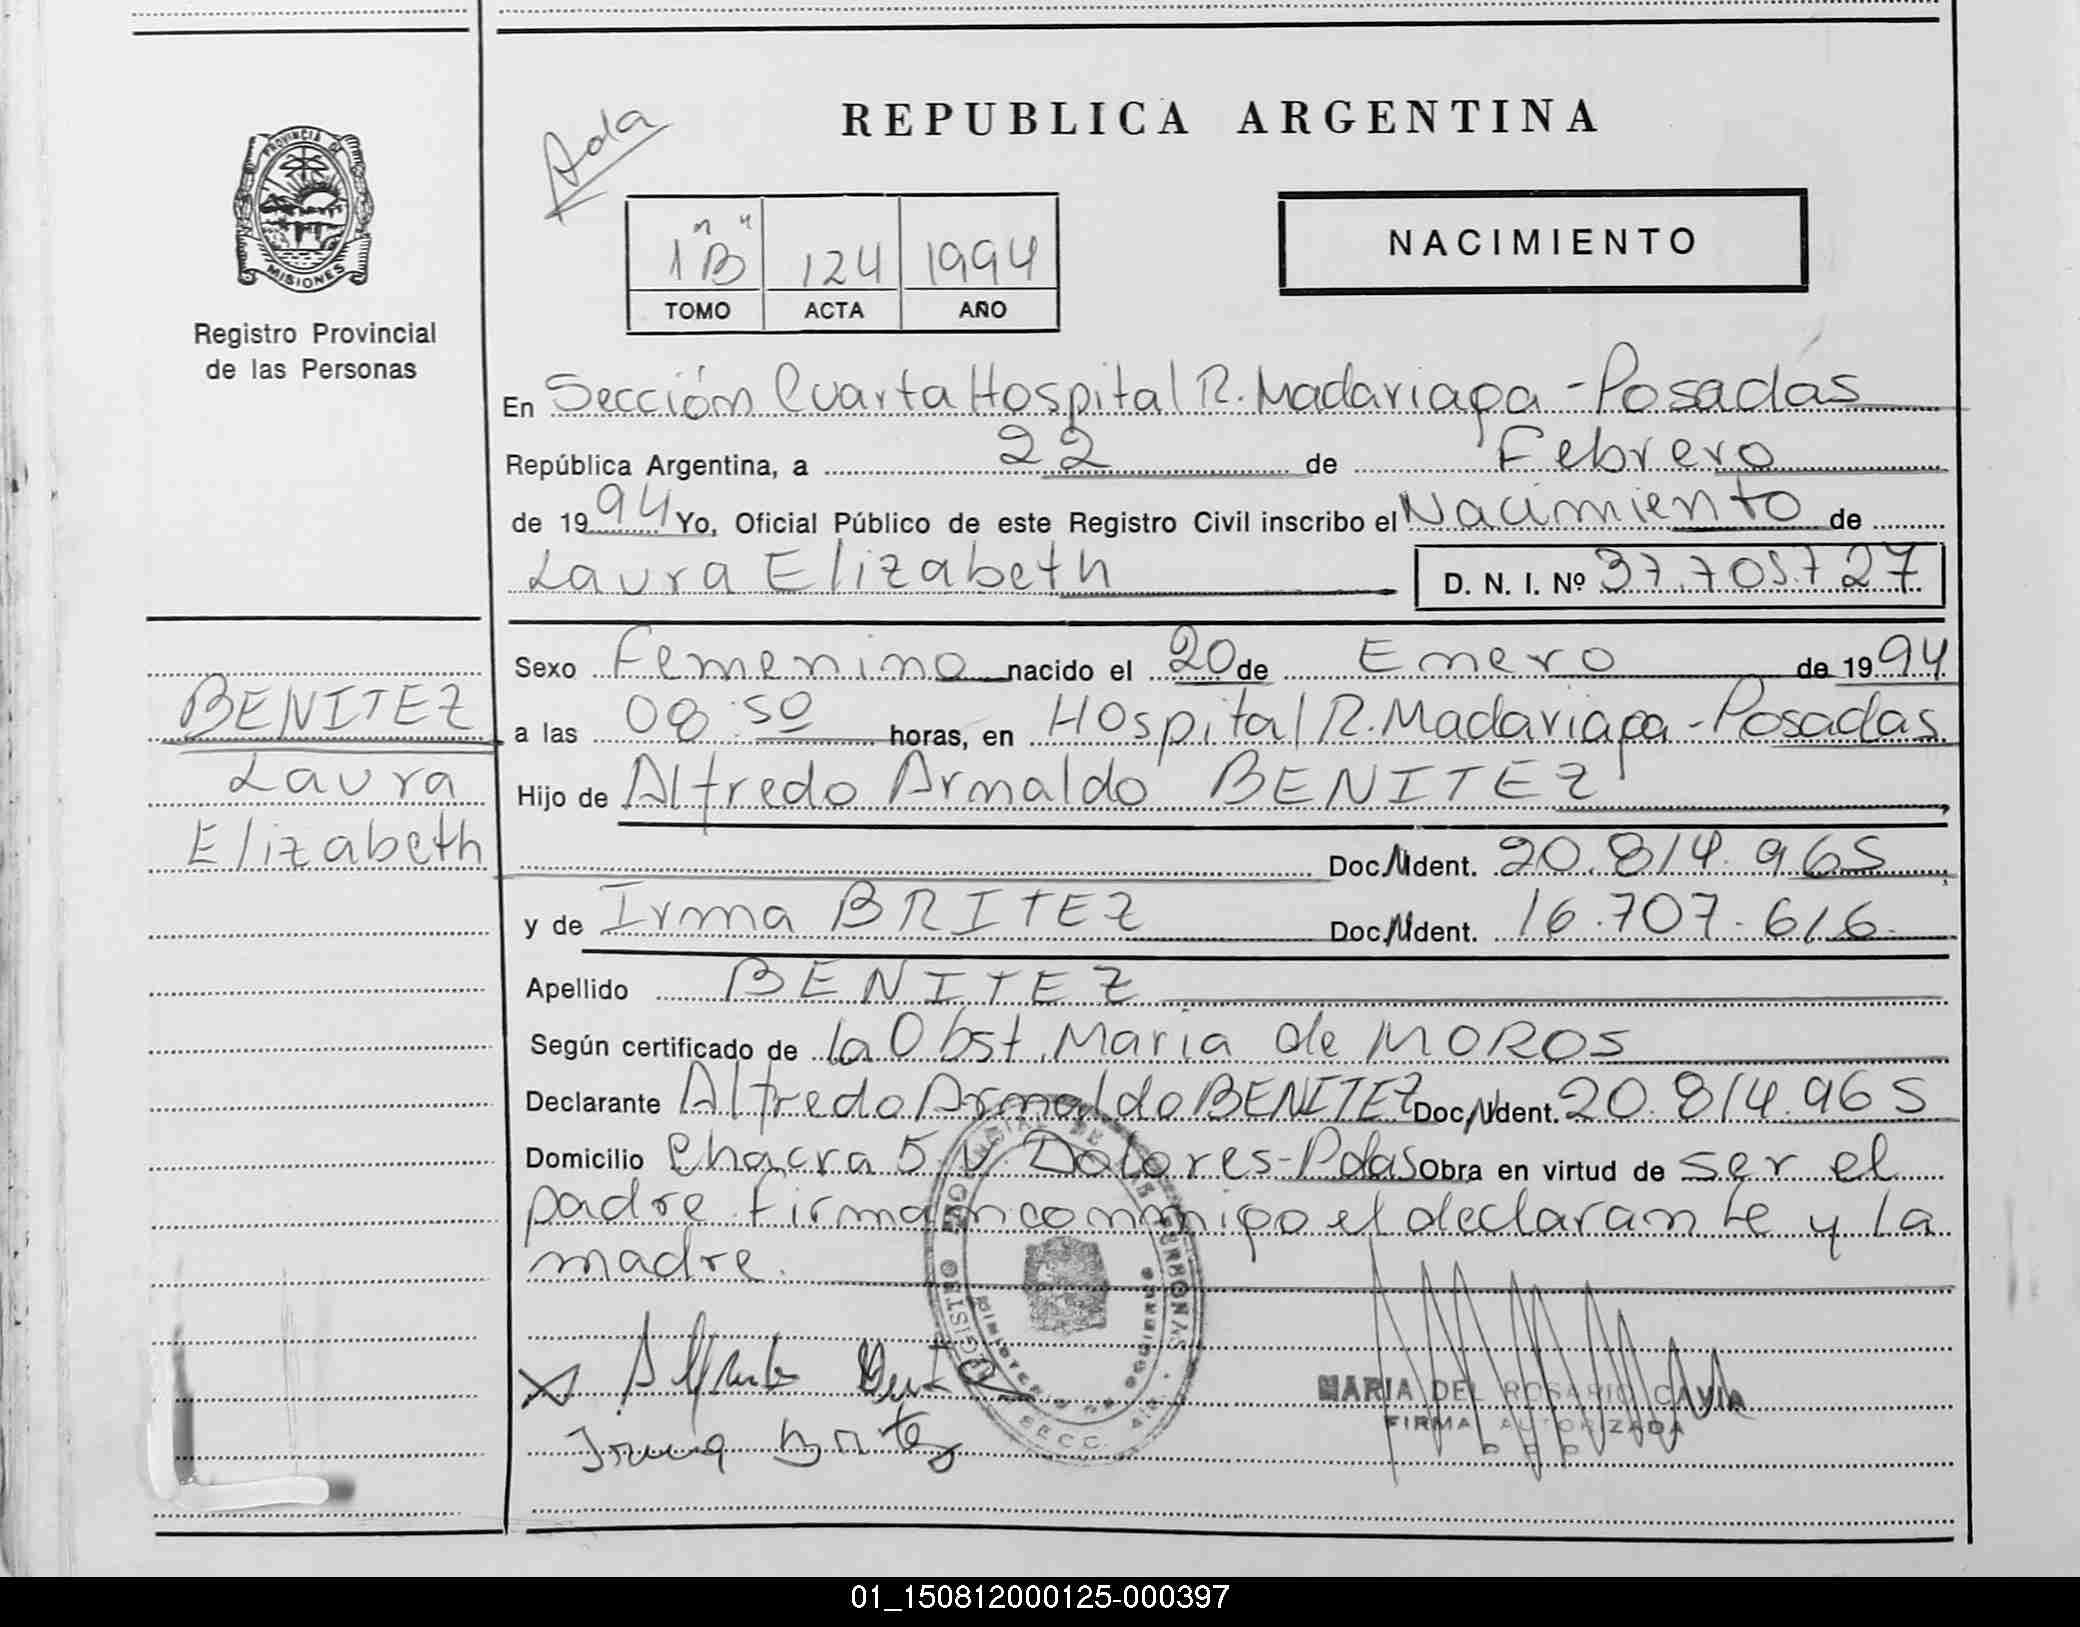 REPUBLICA ARGENTINA
Ada
PROVINCIA DE
MISIONES
Registro Provincial
de las Personas
1 "B" 124 1994
TOMO ACTA AÑO
NACIMIENTO
En Sección Cuarta Hospital R. Madariaga - Posadas
República Argentina, a 22 de Febrero
de 1994 Yo, Oficial Público de este Registro Civil inscribo el Nacimiento de
Laura Elizabeth D. N. I. Nº 37.705.727
Sexo Femenino nacido el 20 de Enero de 1994
BENITEZ
Laura
Elizabeth
a las 08:50 horas, en Hospital R. Madariaga - Posadas
Hijo de Alfredo Arnaldo BENITEZ
Doc. Ident. 20.814.965
y de Irma BRITEZ Doc. Ident. 16.707.616.
Apellido BENITEZ
Según certificado de la Obst. Maria de MOROS
Declarante Alfredo Arnaldo BENITEZ Doc. Ident. 20.814.965
Domicilio Chacra 5 V. Dolores - Pdas Obra en virtud de ser el
padre. Firman conmigo el declarante y la
madre.
Irma Britez
MARIA DEL ROSARIO CAVIA
FIRMA AUTORIZADA
R P P
01_150812000125-000397